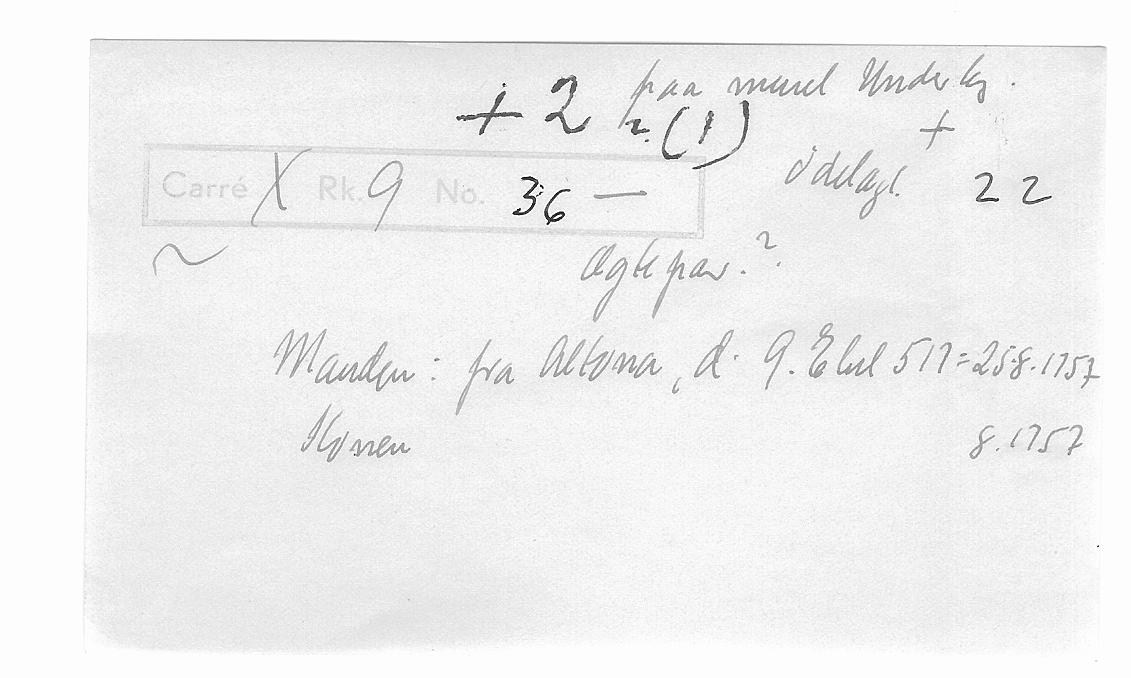 + 2 paa muret Underlag.
2. (1) +
Carré X Rk. 9 No. 36 — ödelagt. 22
~ Ægtepar.?
Manden: fra Altona, d. 9. Elul 517=25.8.1757
Konen 8.1757